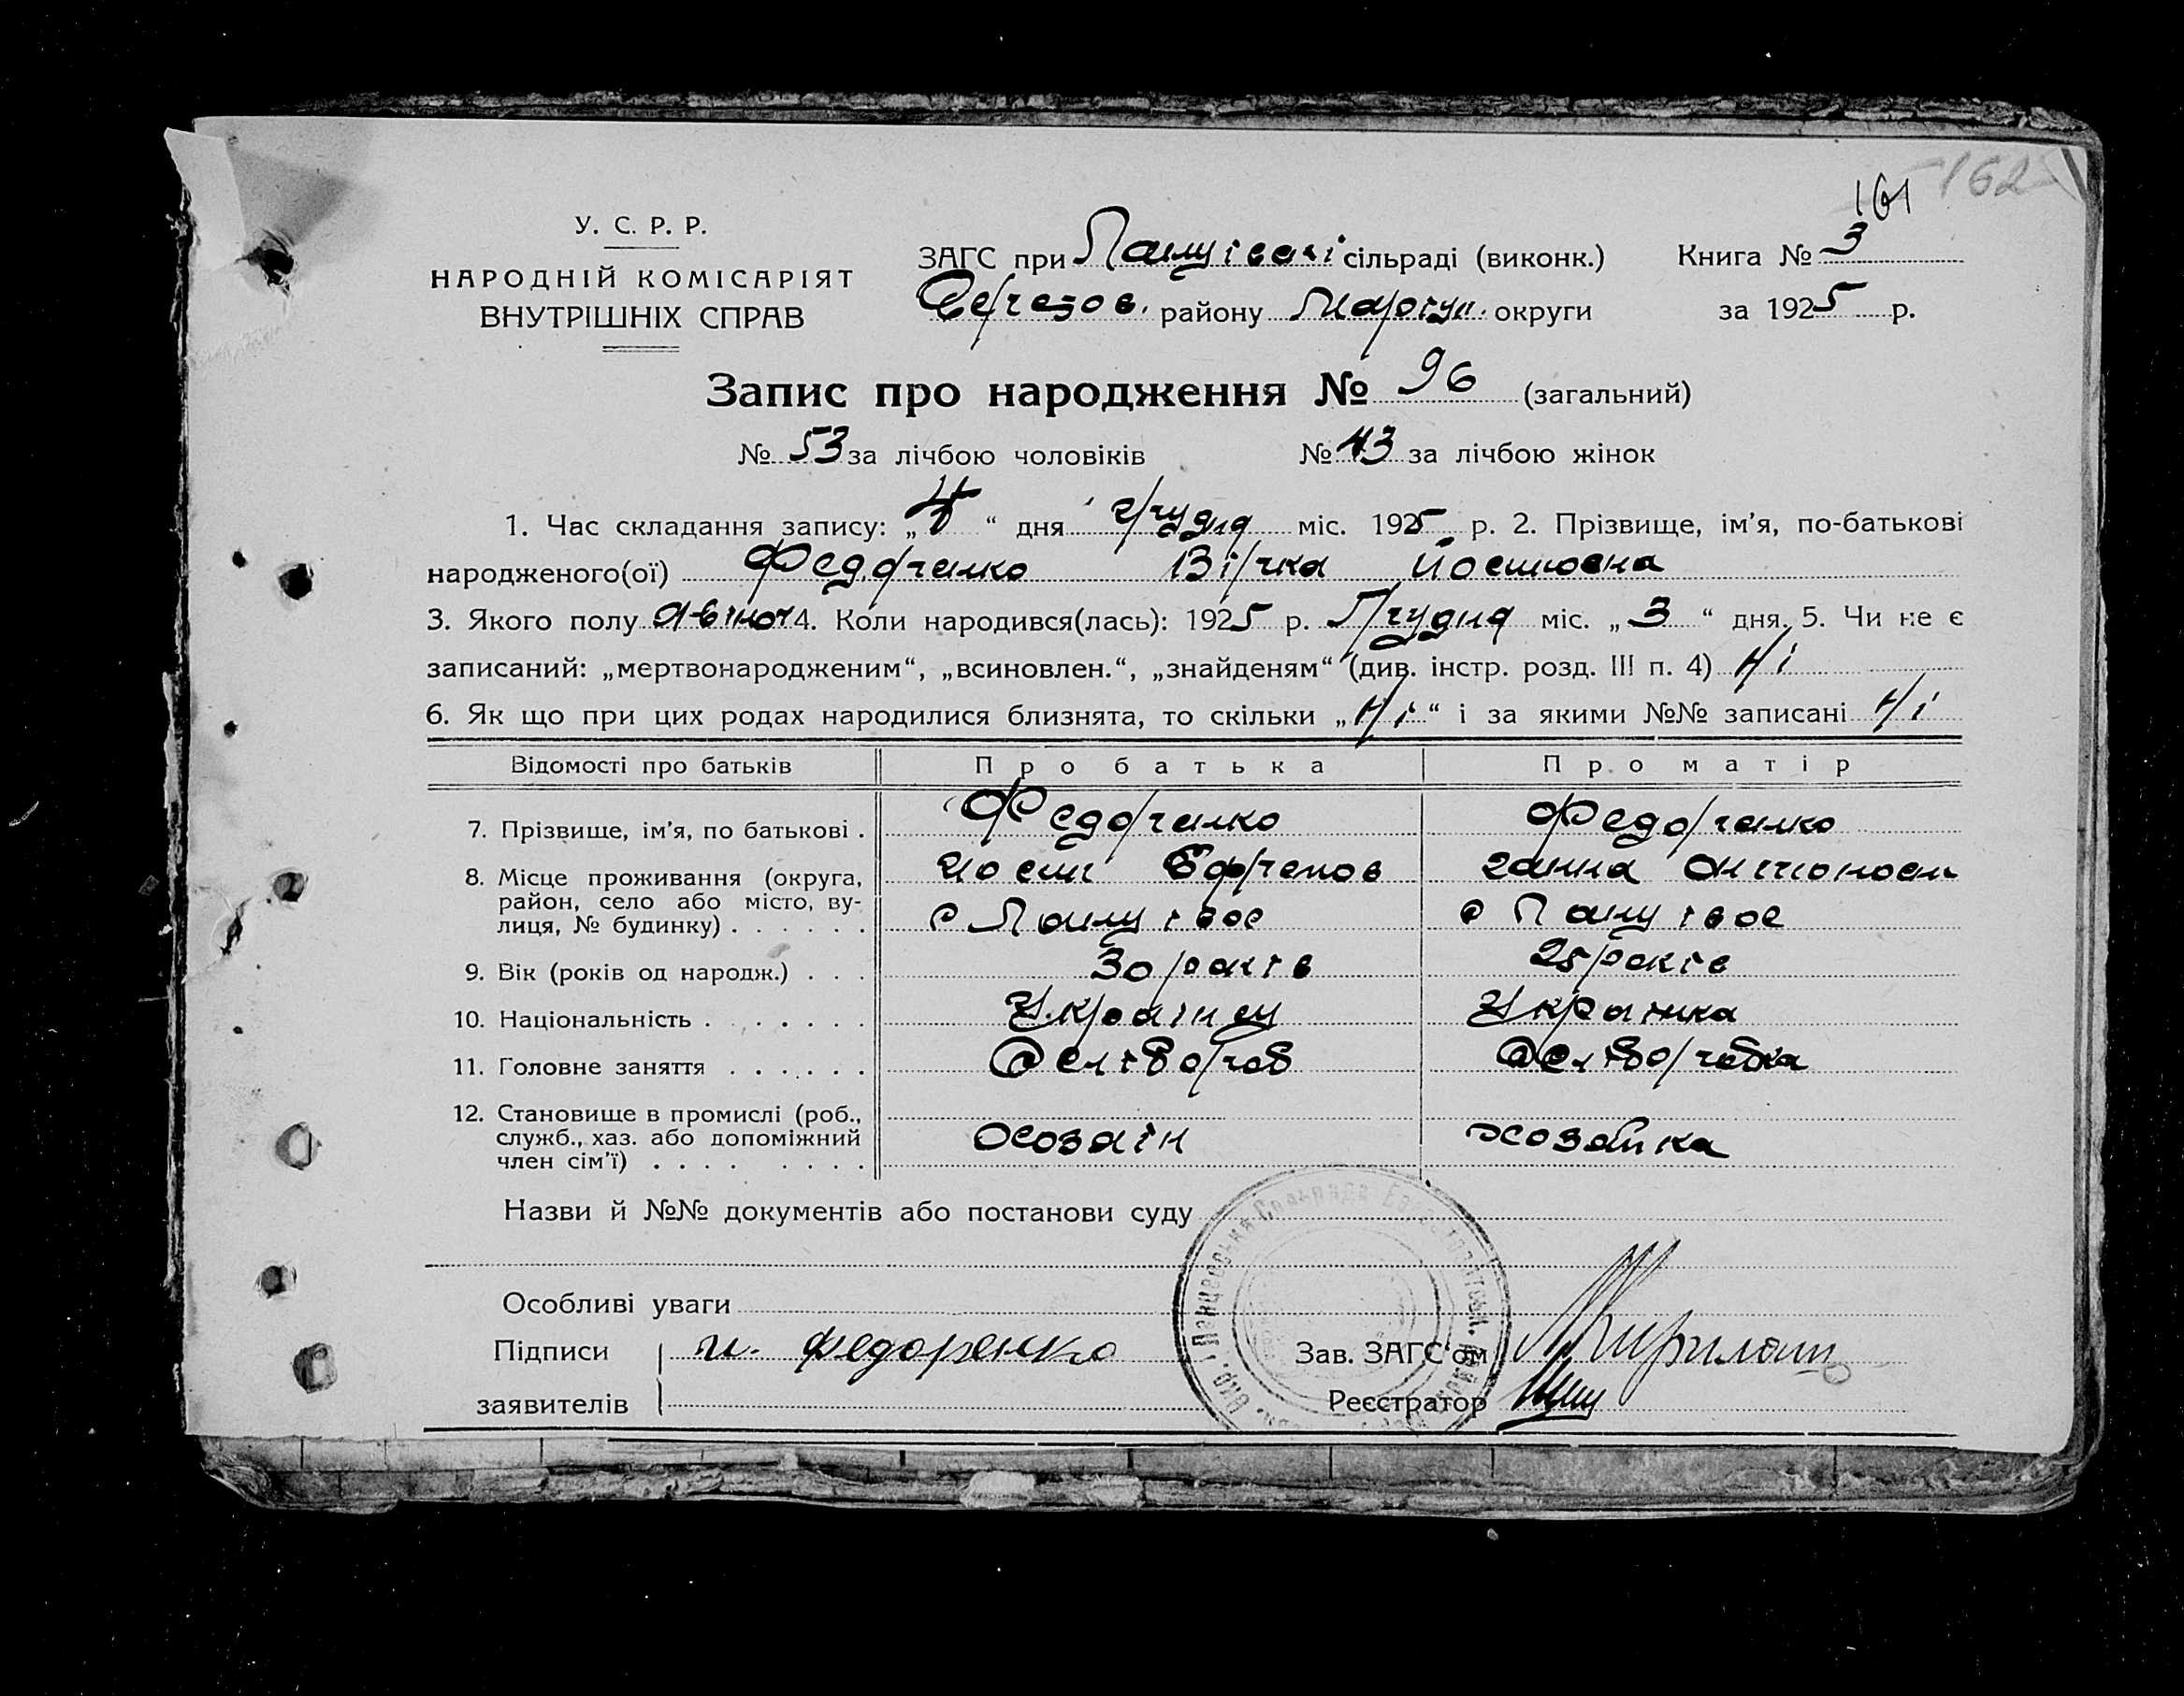 161 162
У. С. Р. Р.
НАРОДНІЙ КОМІСАРІЯТ
ВНУТРІШНІХ СПРАВ
ЗАГС при сільраді (виконк.) Книга № 3
району округи за 1925 р.
Запис про народження № 96 (загальний)
№ 53 за лічбою чоловіків № 43 за лічбою жінок
1. Час складання запису: „ “ дня грудня міс. 1925 р. 2. Прізвище, ім’я, по-батькові
народженого(ої) Федоренко Вірка
3. Якого полу 4. Коли народився(лась): 1925 р. Грудня міс. „3“ дня. 5. Чи не є
записаний: „мертвонародженим“, „всиновлен.“, „знайденям“ (див. інстр. розд. III п. 4) Ні
6. Як що при цих родах народилися близнята, то скільки „Ні“ і за якими №№ записані Ні
Відомості про батьків Про батька Про матір
7. Прізвище, ім’я, по батькові . Федоренко Федоренко
8. Місце проживання (округа, Ганна
район, село або місто, ву-
лиця, № будинку) . . . . . . с с
9. Вік (років од народж.) . . . 30 років 25 років
10. Національність . . . . . . . Українец Українка
11. Головне заняття . . . . . . Селянороб
12. Становище в промислі (роб.,
служб., хаз. або допоміжний хозаїн хозайка
член сім’ї) . . . . . . . .
Назви й №№ документів або постанови суду
Особливі уваги
Підписи Й. Федоренко Зав. ЗАГС’ом
заявителів Реєстратор